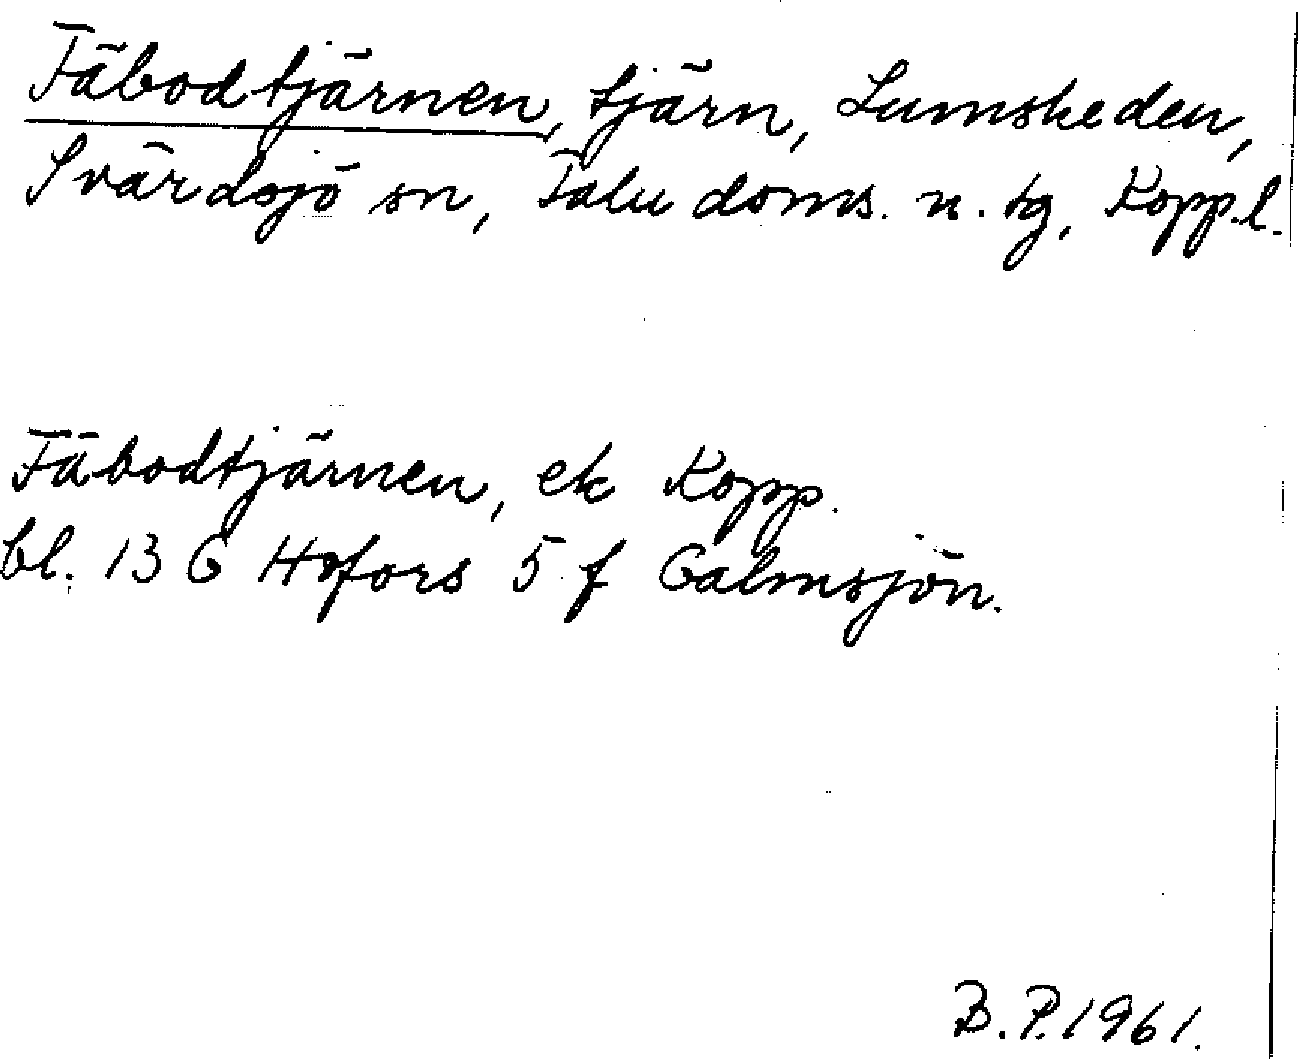 Fäbodtjärnen, tjärn, Lumsheden,
Svärdsjö sn, Falu doms. n. tg, Kopp.l.
Fäbodtjärnen, ek Kopp.
bl. 13 G Hofors 5 f Galmsjön.
B. P. 1961.